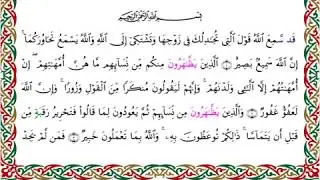 بِسْمِ اللَّهِ الرَّحْمَٰنِ الرَّحِيمِ
قَدْ سَمِعَ اللَّهُ قَوْلَ الَّتِي تُجَادِلُكَ فِي زَوْجِهَا وَتَشْتَكِي إِلَى اللَّهِ وَاللَّهُ يَسْمَعُ تَحَاوُرَكُمَا ۚ
إِنَّ اللَّهَ سَمِيعٌ بَصِيرٌ ۝ الَّذِينَ يُظَاهِرُونَ مِنكُم مِّن نِّسَائِهِم مَّا هُنَّ أُمَّهَاتِهِمْ ۖ إِنْ
أُمَّهَاتُهُمْ إِلَّا اللَّائِي وَلَدْنَهُمْ ۚ وَإِنَّهُمْ لَيَقُولُونَ مُنكَرًا مِّنَ الْقَوْلِ وَزُورًا ۚ وَإِنَّ اللَّهَ
لَعَفُوٌّ غَفُورٌ ۝ وَالَّذِينَ يُظَاهِرُونَ مِن نِّسَائِهِمْ ثُمَّ يَعُودُونَ لِمَا قَالُوا فَتَحْرِيرُ رَقَبَةٍ مِّن
قَبْلِ أَن يَتَمَاسَّا ۚ ذَٰلِكُمْ تُوعَظُونَ بِهِ ۚ وَاللَّهُ بِمَا تَعْمَلُونَ خَبِيرٌ ۝ فَمَن لَّمْ يَجِدْ